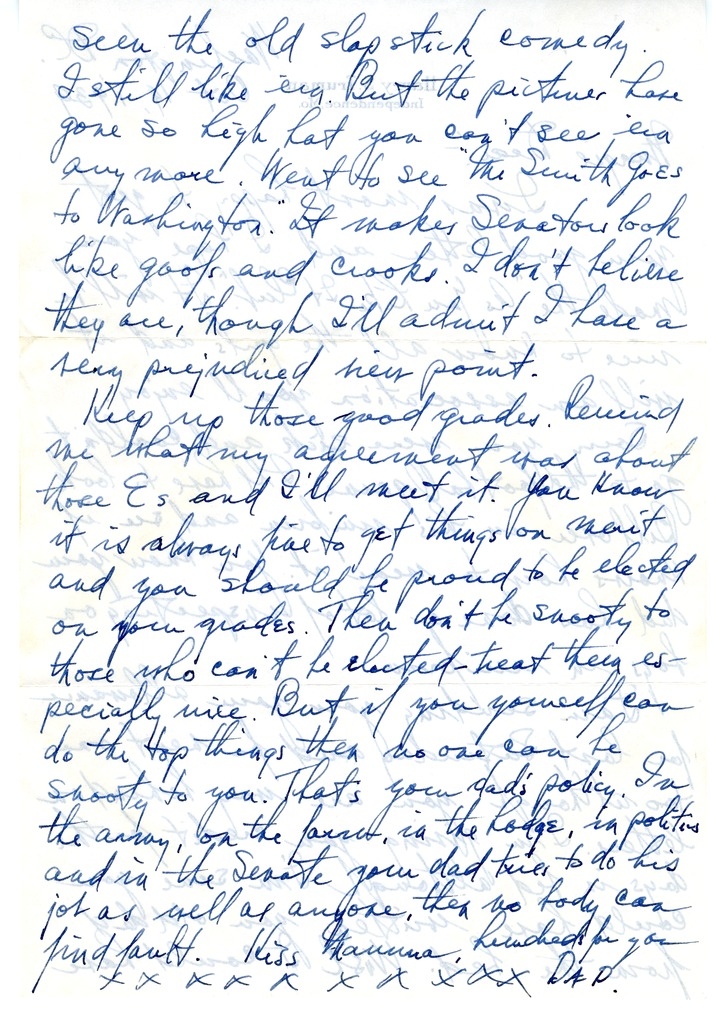 seen the old slapstick comedy.
I still like 'em. But the pictures have
gone so high hat you can't see 'em
any more. Went to see "Mr Smith Goes
to Washington." It makes Senators look
like goofs and crooks. I don't believe
they are, though I'll admit I have a
very prejudiced view point.
Keep up those good grades. Remind
me what my agreement was about
those Es and I'll meet it. You know
it is always fine to get things on merit
and you should be proud to be elected
on your grades. Then don't be snooty to
those who can't be elected-treat them es-
pecially nice. But if you yourself can
do the top things then no one can be
snooty to you. That's your dad's policy. In
the army, on the farm, in the Lodge, in politics
and in the Senate your dad tries to do his
job as well as anyone, then no body can
find fault. Kiss Mamma, hundreds for you
x x x x x x x x x x DAD.